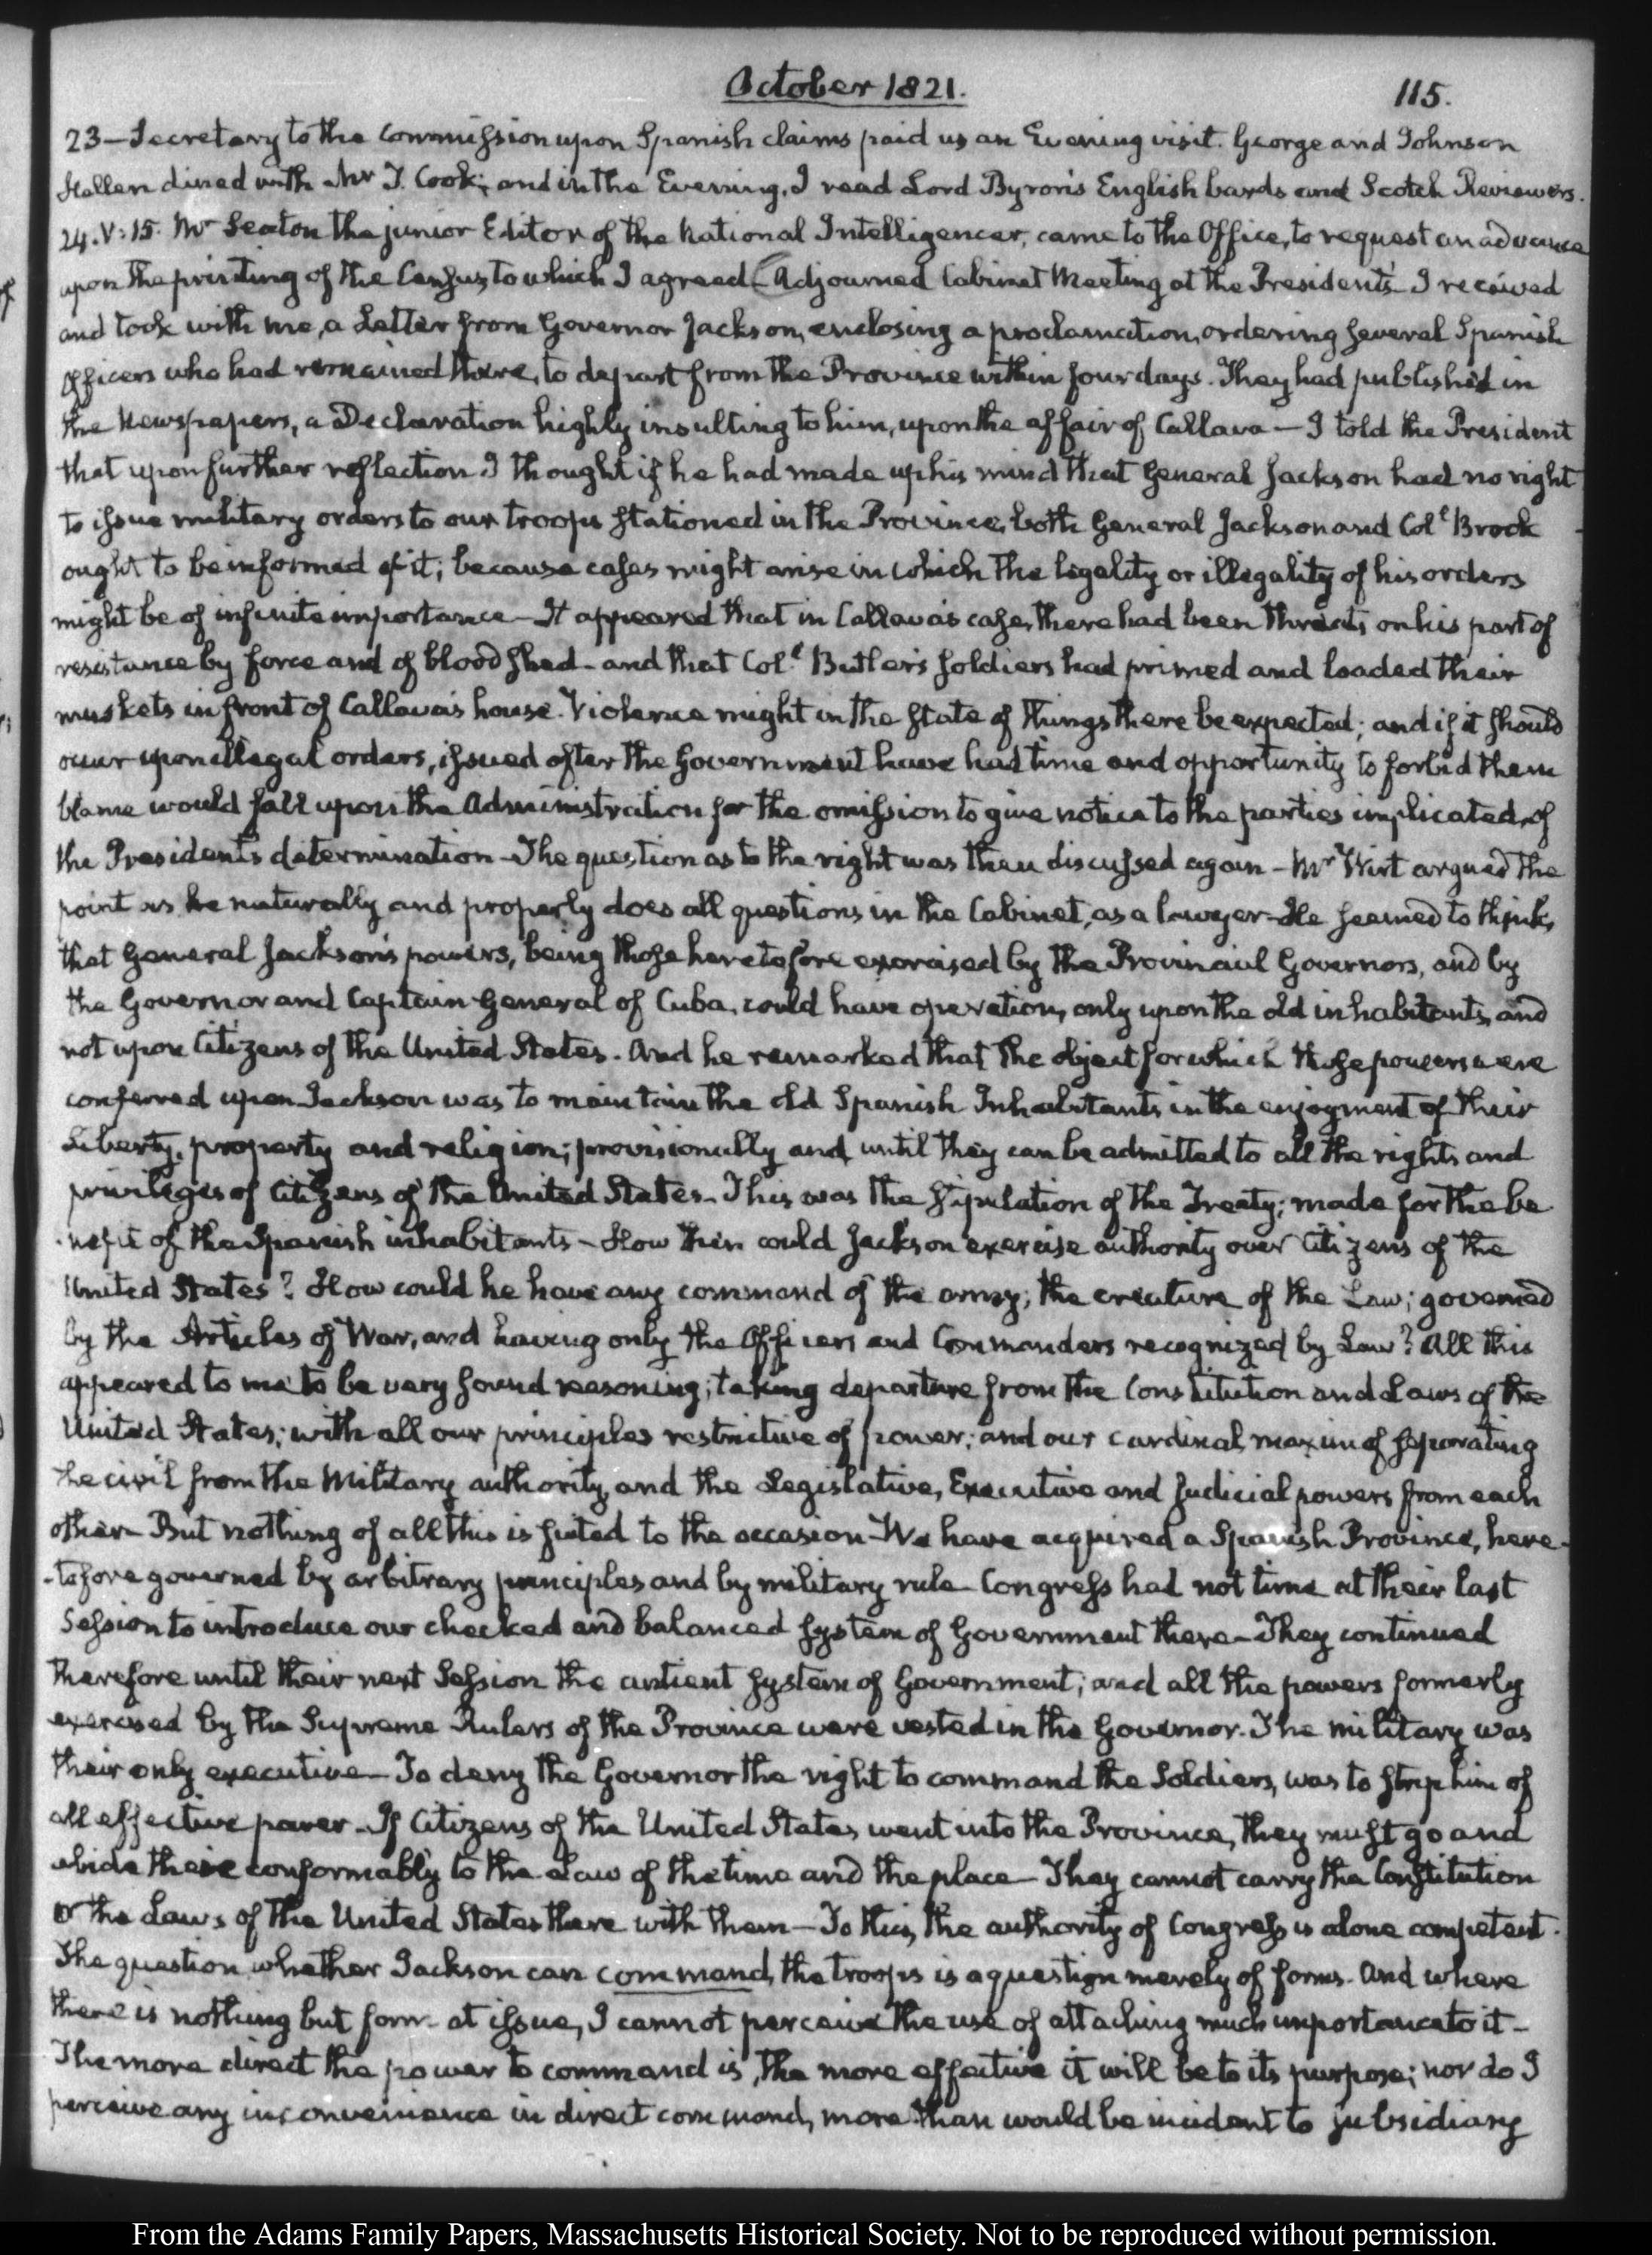 October 1821.
115.
23—Secretary to the Commission upon Spanish claims paid us an Evening visit. George and Johnson
Hellen dined with Mr J. Cook; and in the Evening, I read Lord Byron's English bards and Scotch Reviewers.
24. V:15. Mr Seaton the junior Editor of the National Intelligencer, came to the Office, to request an advance
upon the printing of the Census, to which I agreed—Adjourned Cabinet Meeting at the President's—I received
and took with me, a Letter from Governor Jackson, enclosing a proclamation, ordering several Spanish
Officers who had remained there, to depart from the Province within four days. They had published in
the Newspapers, a Declaration highly insulting to him, upon the affair of Callava—I told the President
that upon further reflection I thought if he had made up his mind that General Jackson had no right
to issue military orders to our troops stationed in the Province, both General Jackson and Coll Brook
ought to be informed of it; because cases might arise in which the legality or illegality of his orders
might be of infinite importance—It appeared that in Callava's case, there had been threats on his part of
resistance by force and of blood shed—and that Coll Butler's soldiers had primed and loaded their
muskets in front of Callava's house. Violence might in the state of things there be expected; and if it should
occur upon illegal orders, issued after the Government have had time and opportunity to forbid them
blame would fall upon the Administration for the omission to give notice to the parties implicated, of
the President's determination—The question as to the right was then discussed again—Mr Wirt argued the
point as he naturally and properly does all questions in the Cabinet, as a lawyer—He seemed to think,
that General Jackson's powers, being those heretofore exercised by the Provincial Governors, and by
the Governor and Captain General of Cuba, could have operation, only upon the old inhabitants, and
not upon Citizens of the United States. And he remarked that the object for which those powers were
conferred upon Jackson was to maintain the old Spanish Inhabitants in the enjoyment of their
Liberty, property and religion; provisionally and until they can be admitted to all the rights and
privileges of Citizens of the United States—This was the stipulation of the Treaty; made for the be
-nefit of the Spanish inhabitants—How then could Jackson exercise authority over Citizens of the
United States? How could he have any command of the army; the creature of the Law; governed
by the Articles of War, and having only the Officers and Commanders recognized by Law? All this
appeared to me to be very sound reasoning; taking departure from the Constitution and Laws of the
United States; with all our principles restrictive of power; and our cardinal maxim of separating
the civil from the Military authority, and the Legislative, Executive and Judicial powers from each
other—But nothing of all this is suited to the occasion—We have acquired a Spanish Province, here-
-tofore governed by arbitrary principles and by military rule—Congress had not time at their last
Session to introduce our checked and balanced system of Government there—They continued
therefore until their next Session the antient system of Government; and all the powers formerly
exercised by the Supreme Rulers of the Province were vested in the Governor. The military was
their only executive—To deny the Governor the right to command the Soldiers, was to strip him of
all effective power—If Citizens of the United States went into the Province, they must go and
abide there conformably to the Law of the time and the place—They cannot carry the Constitution
or the Laws of the United States there with them—To this, the authority of Congress is alone competent.
The question whether Jackson can command, the troops is a question merely of forms. And where
there is nothing but form at issue, I cannot perceive the use of attaching much importance to it—
The more direct the power to command is, the more effective it will be to its purpose; nor do I
perceive any inconvenience in direct command, more than would be incident to subsidiary
From the Adams Family Papers, Massachusetts Historical Society. Not to be reproduced without permission.